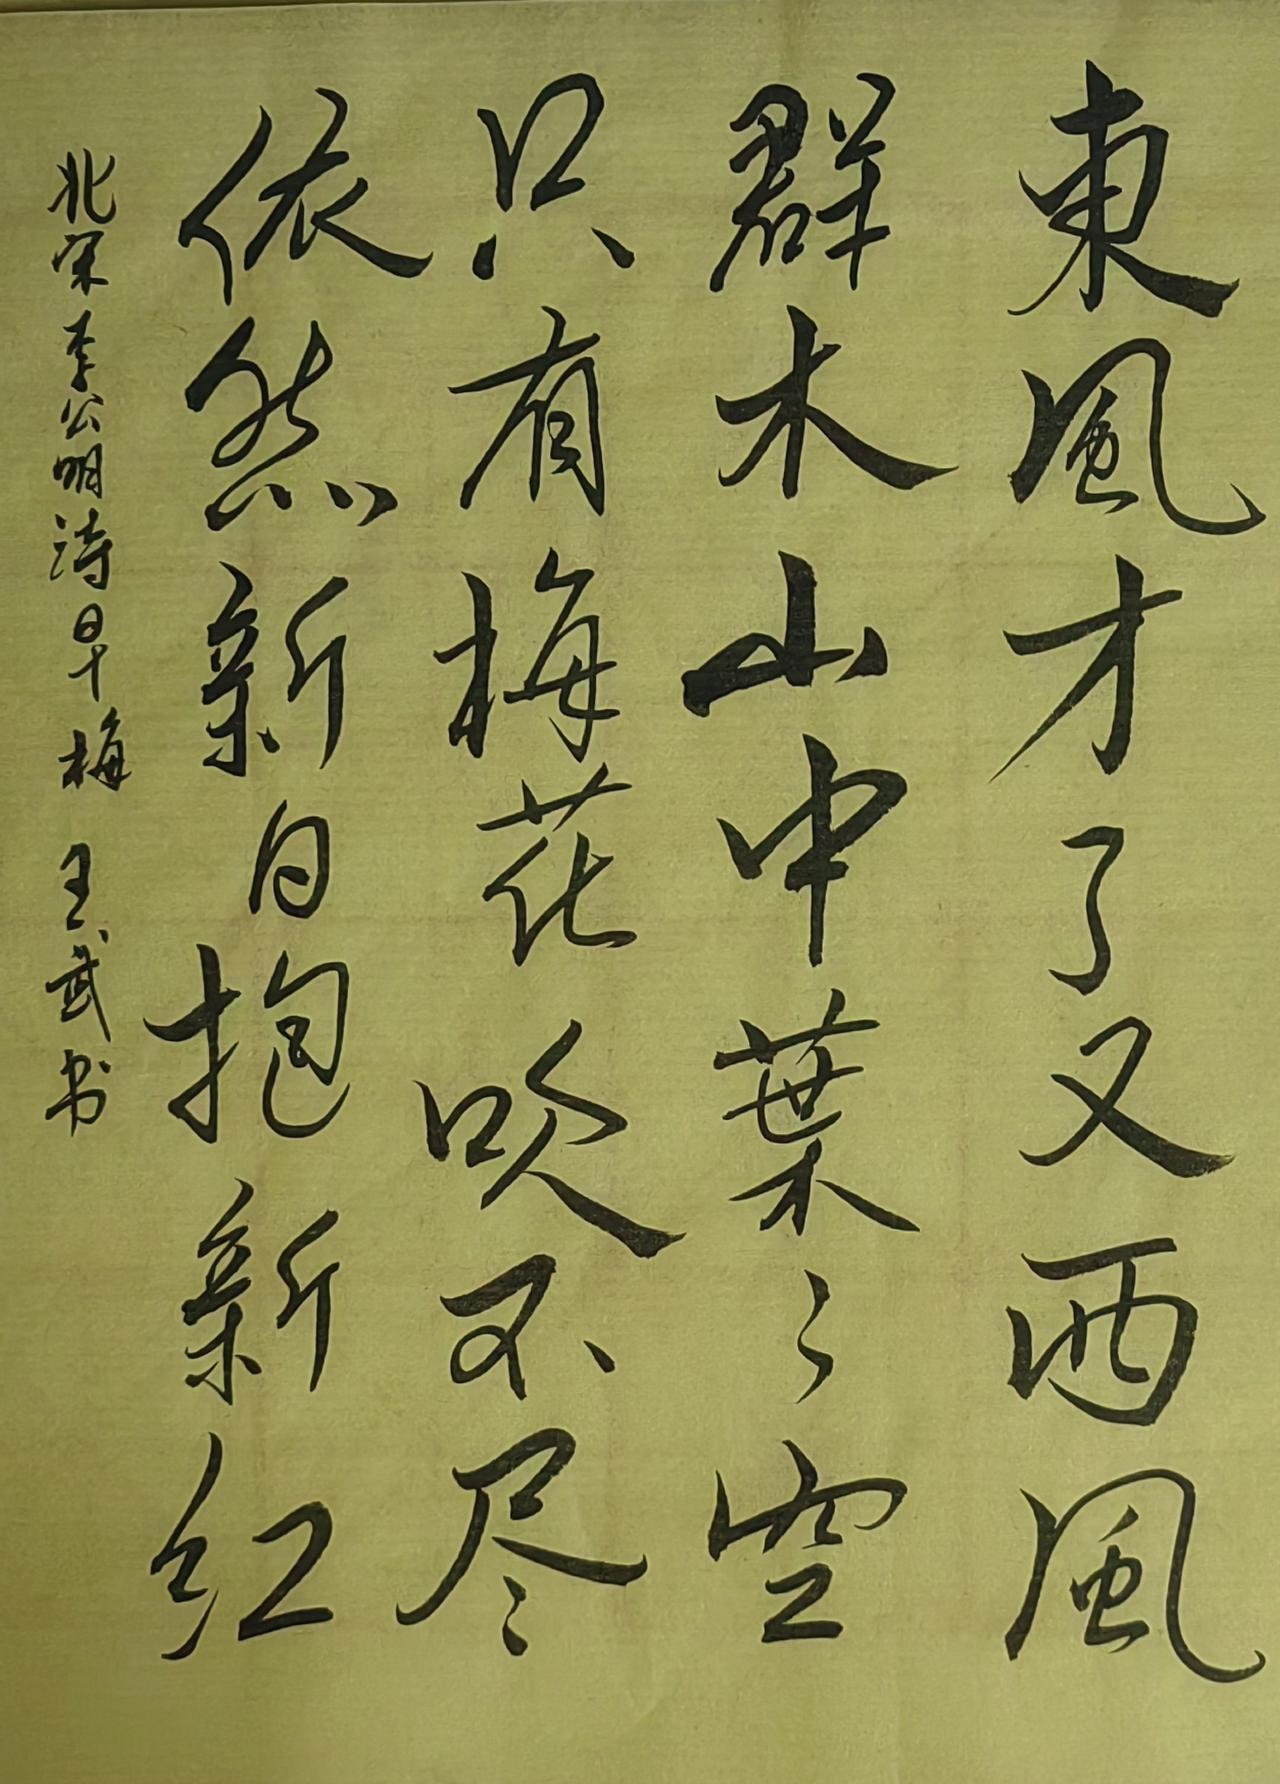 東風才了又西風
群木山中葉〻空
只有梅花吹不尽
依然新白抱新红
北宋李公明詩早梅 王武书